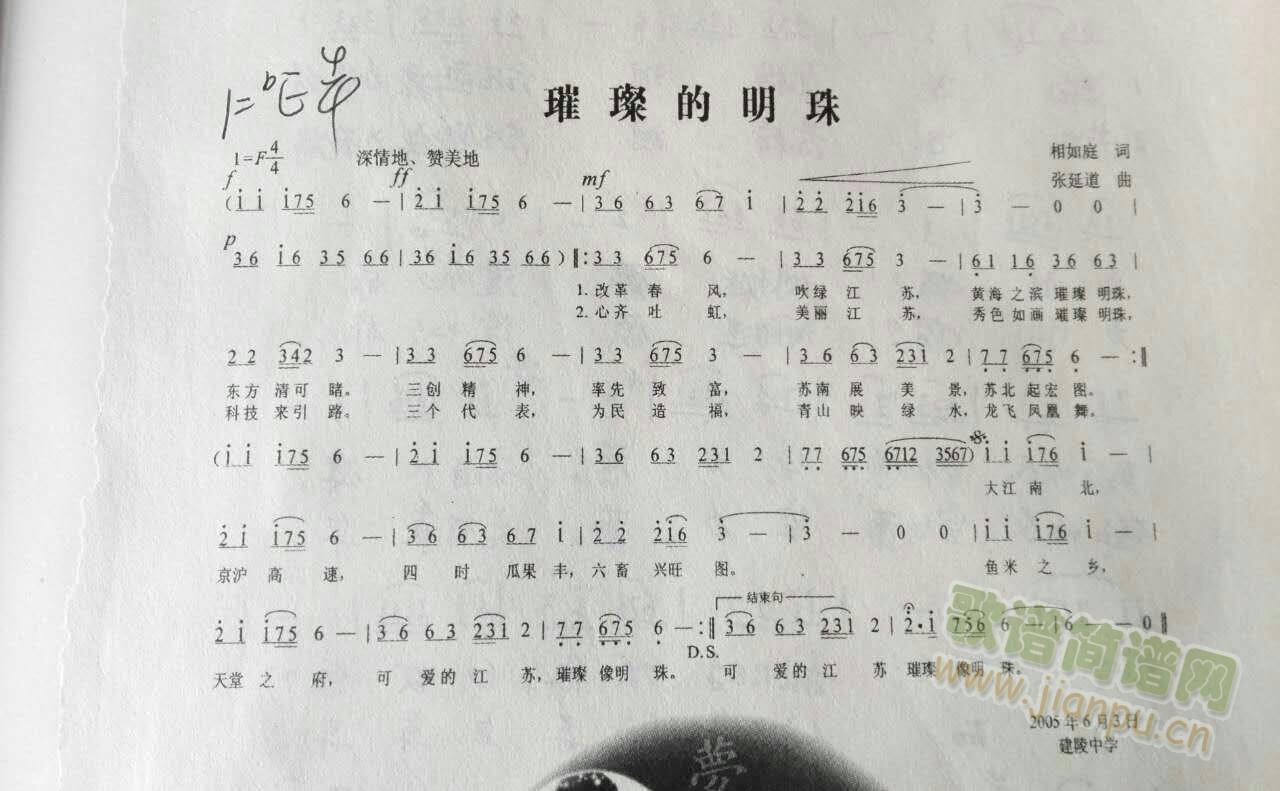 1=♭E 4/4
璀璨的明珠
1=F 4/4 深情地、赞美地 相如庭 词
f ff mf 张延道 曲
( i̇ i̇ i̇75 6 — | 2̇ i̇ i̇75 6 — | 36 63 67 i̇ | 2̇ 2̇ 2̇i̇6 3̇ — | 3̇ — 0 0 |
p
36 i̇6 35 66 | 36 i̇6 35 66 ) ‖: 33 675 6 — | 33 675 3 — | 61 16 36 63 |
1. 改革 春 风, 吹绿 江 苏, 黄海 之滨 璀璨 明珠,
2. 心齐 吐 虹, 美丽 江 苏, 秀色 如画 璀璨 明珠,
22 342 3 — | 33 675 6 — | 33 675 3 — | 36 63 231 2 | 77 675 6 — :‖
东方 清可 睹。 三创 精 神, 率先 致 富, 苏南 展 美 景, 苏北 起宏 图。
科技 来引 路。 三个 代 表, 为民 造 福, 青山 映 绿 水, 龙飞 凤凰 舞。
( i̇ i̇ i̇75 6 — | 2̇ i̇ i̇75 6 — | 36 63 231 2 | 77 675 6712 3567 ) 𝄋 i̇ i̇ i̇76 i̇ — |
大江 南 北,
2̇ i̇ i̇75 6 — | 36 63 67 i̇ | 2̇ 2̇ 2̇i̇6 3̇ — | 3̇ — 0 0 | i̇ i̇ i̇76 i̇ — |
京沪 高 速, 四 时 瓜果 丰, 六畜 兴旺 图。 鱼米 之 乡,
结束句
2̇ i̇ i̇75 6 — | 36 63 231 2 | 77 675 6 — :‖ 36 63 231 2 | 2̇· i̇ 756 6 — | 6 — — 0 ‖
D.S.
天堂 之 府, 可 爱的 江 苏, 璀璨 像明 珠。 可 爱的 江 苏 璀璨 像明 珠。
歌谱简谱网
www.jianpu.cn
2005年6月3日
建陵中学
夢